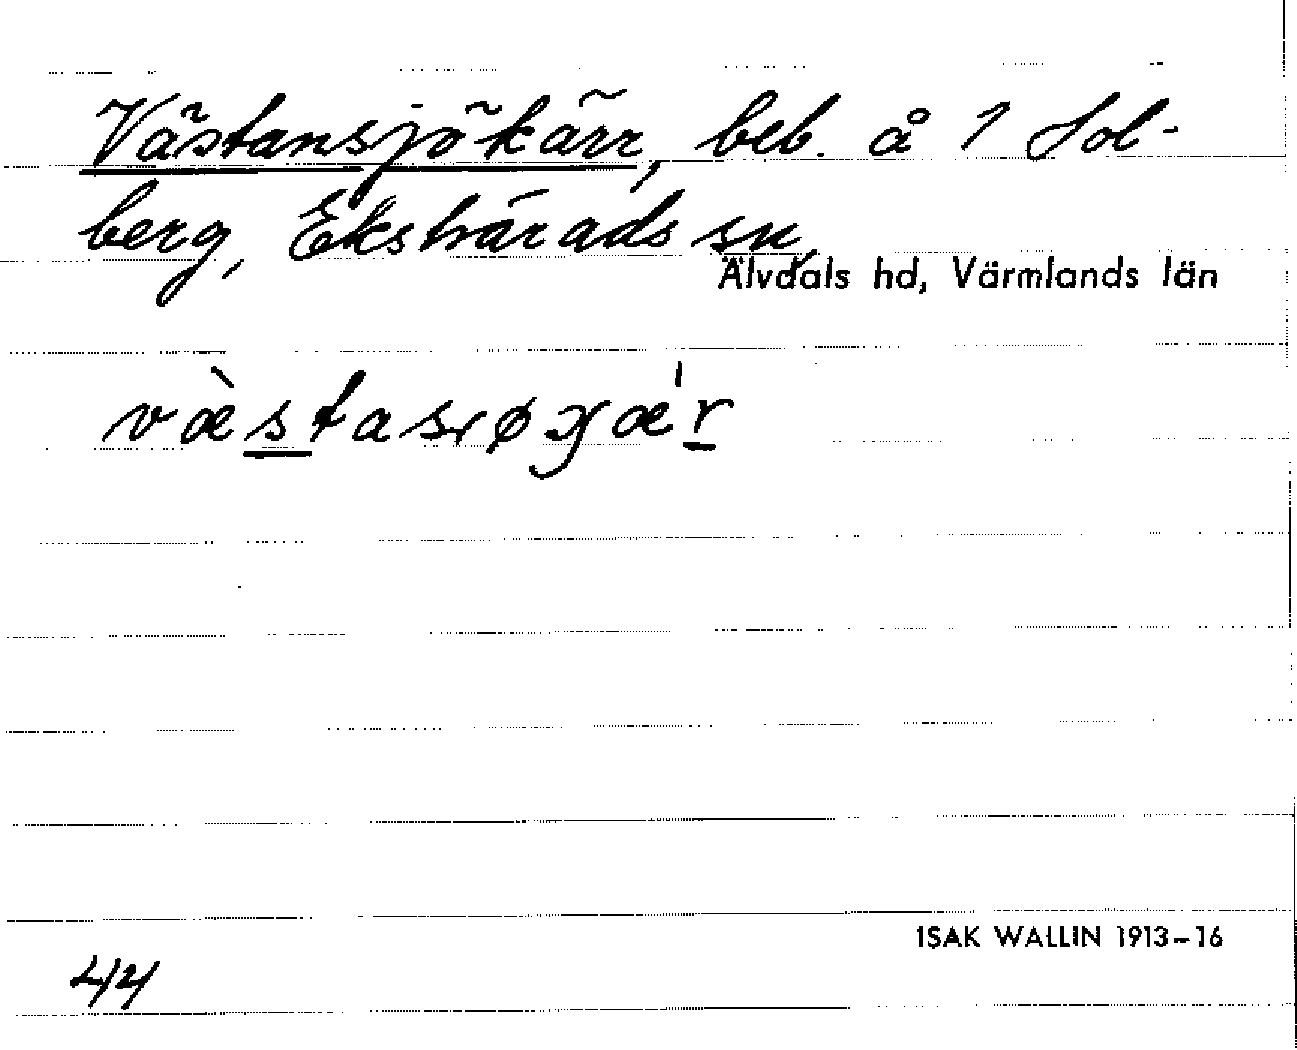 Västansjökärr, beb. å 1 Sol-
berg, Ekshärads sn,
Älvdals hd, Värmlands län
ISAK WALLIN 1913–16